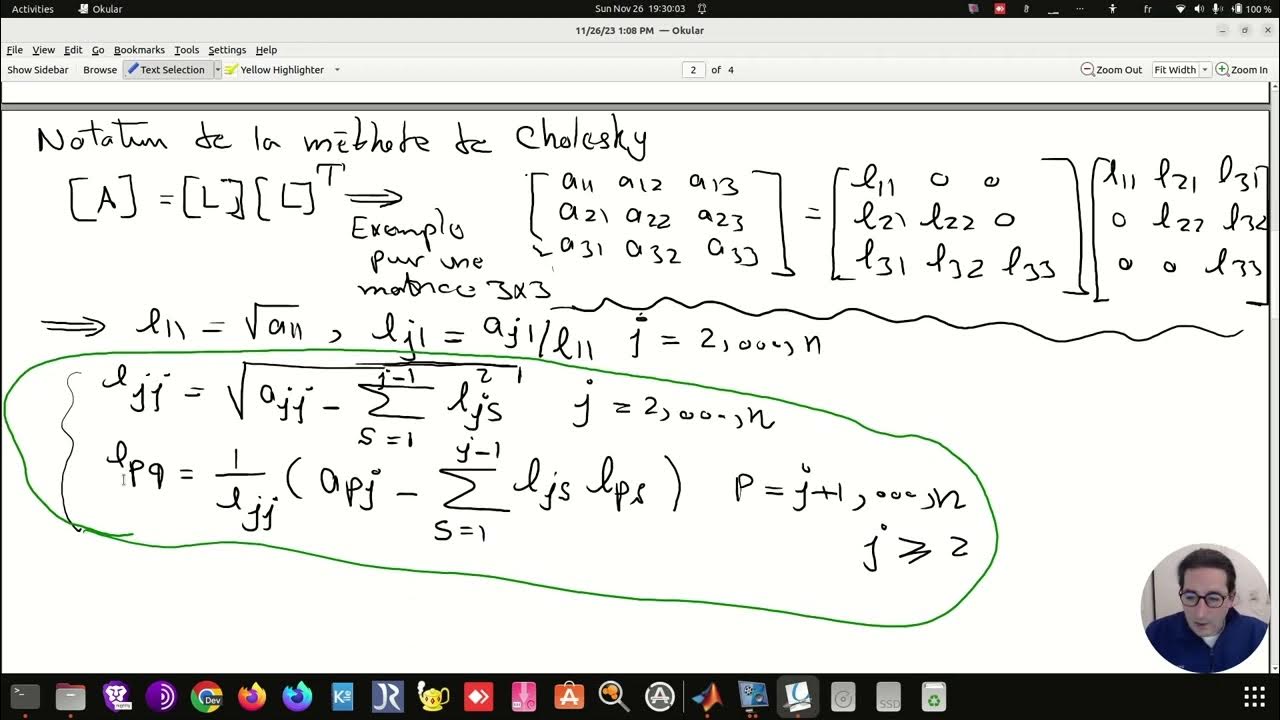 Activities Okular Sun Nov 26 19:30:03 fr 100 %
11/26/23 1:08 PM — Okular
File View Edit Go Bookmarks Tools Settings Help
Show Sidebar Browse Text Selection Yellow Highlighter 2 of 4 Zoom Out Fit Width Zoom In
Notatun de la méthote de Cholesky
[A] = [L][L]^T ⟹ [a11 a12 a13; a21 a22 a23; a31 a32 a33] = [l11 0 0; l21 l22 0; l31 l32 l33] [l11 l21 l31; 0 l22 l32; 0 0 l33]
Exemple
pur une
matrice 3x3
⟹ l11 = √a11 , lj1 = aj1/l11 j = 2,...,n
ljj = √(ajj − Σ_{s=1}^{j-1} ljs^2) j = 2,...,n
lpq = 1/ljj (apj − Σ_{s=1}^{j-1} ljs lps) p = j+1,...,n
j ⩾ 2
Dev
SSD